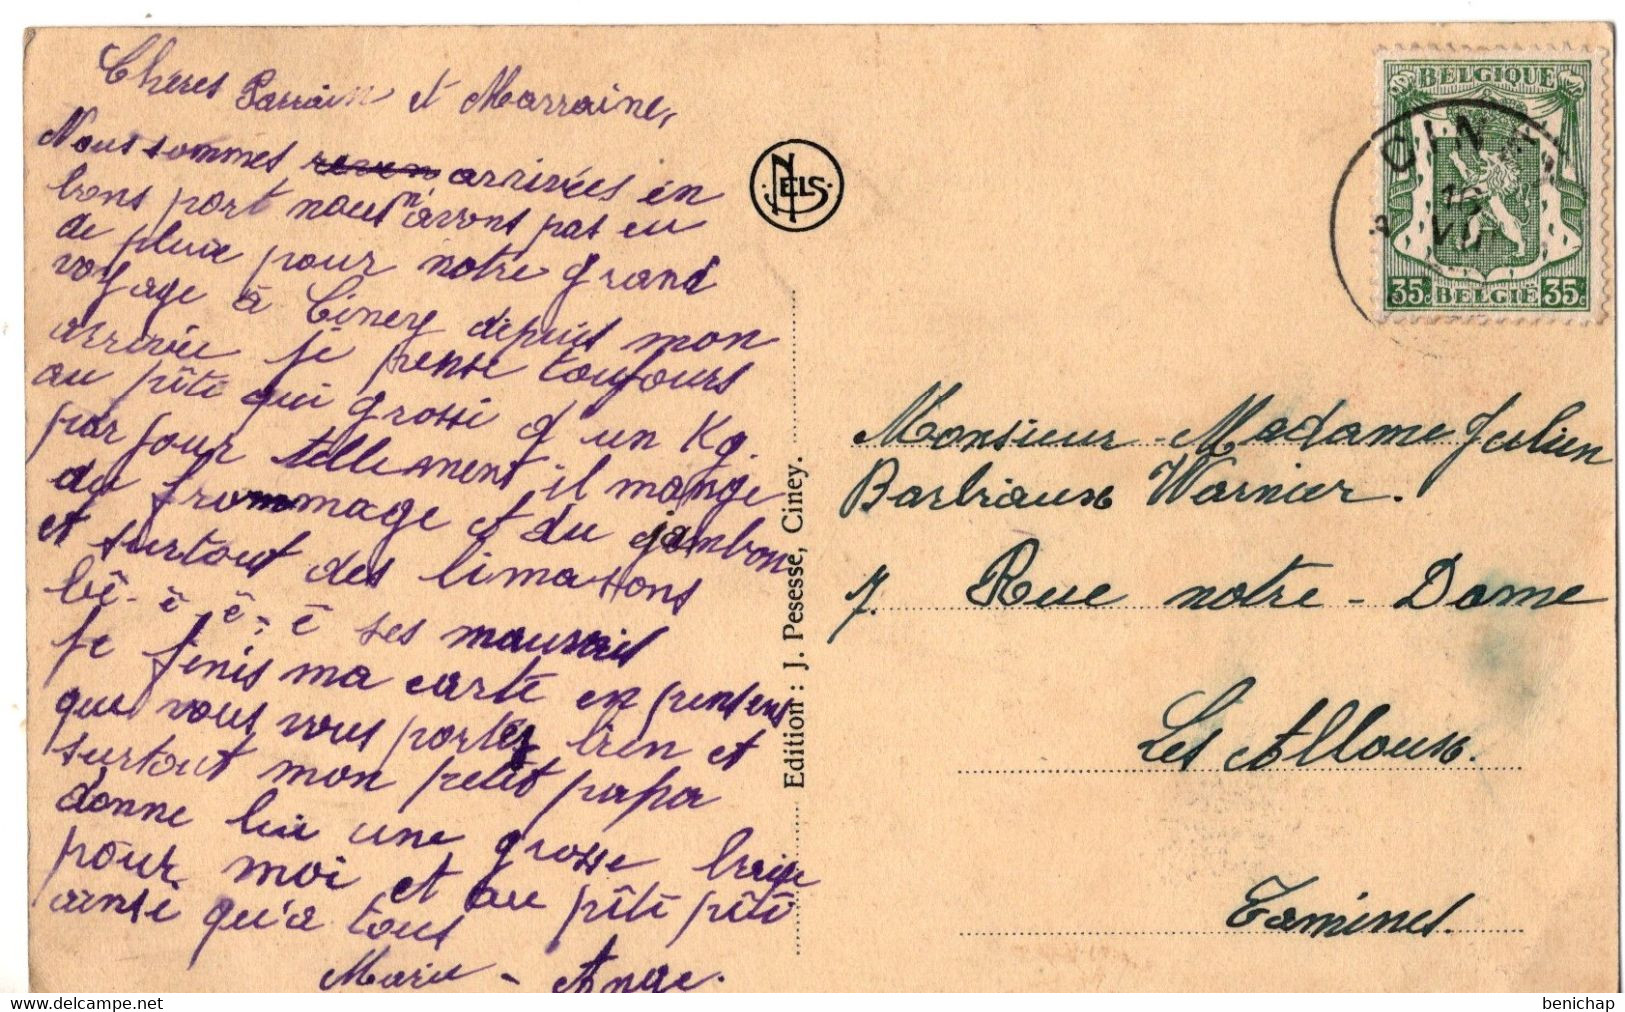 Cheres Parrain et Marraine,
Nous sommes arrivées en
bons port nous n'avons pas eu
de pluie pour notre grand
voyage à Ciney depuis mon
arrivée je pense toujours
au pîtî qui grossi d'un Kg.
par jour tellement il mange
du frommage et du jambon
et surtout des limasons
bê-ê-ê-ê ses mauvais
je finis ma carte en pensens
que vous vous portez bien et
surtout mon petit papa
donne lui une grosse baise
pour moi et au pîtî pîtî
ainsi qu'a tous
Marie - Ange.
NELS
Edition : J. Pesesse, Ciney.
BELGIQUE
35c BELGIË 35c
CIN
VI
Monsieur - Madame Julien
Barbiaux Warnier.
7. Rue notre - Dame
Les Alloux.
Tamines.
benichap